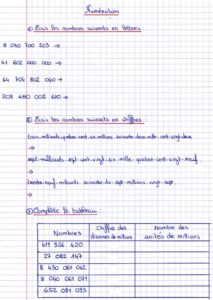 Numération
① Ecris les nombres suivants en lettres
8 040 700 203 →
41 602 000 000 →
64 704 802 040 →
208 480 002 610 →
② Ecris les nombres suivants en chiffres
trois-milliards-quatre-cent-six-millions-soixante-deux-mille-cent-vingt-deux
→
sept-milliards-sept-cent-vingt-six-mille-quatre-cent-vingt-neuf
→
trente-neuf-milliards-soixante-dix-sept-millions-vingt-sept
→
③ Complète le tableau :
Nombres Chiffre des dizaines de millions Nombre des unités de millions
611 926 420
27 082 147
8 430 061 042
8 040 061 071
652 081 093